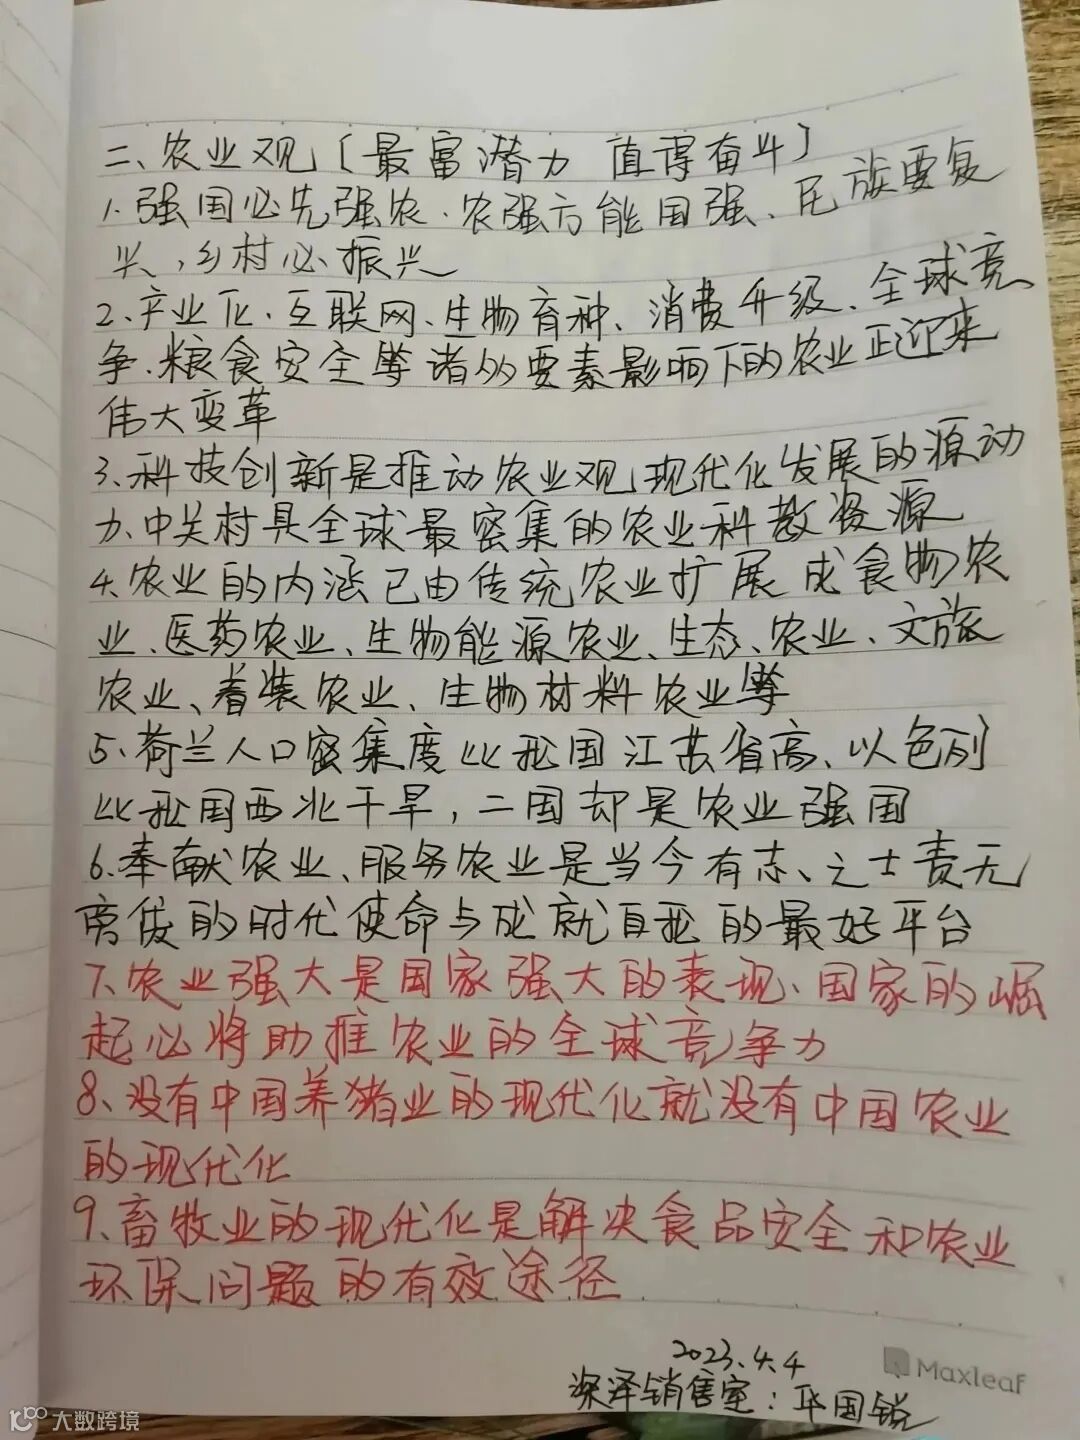 二、农业观〔最富潜力 值得奋斗〕
1.强国必先强农.农强方能国强、民族要复
兴,乡村必振兴
2、产业化.互联网、生物育种、消费升级、全球竞
争.粮食安全等诸多要素影响下的农业正迎来
伟大变革
3.科技创新是推动农业观现代化发展的源动
力.中关村具全球最密集的农业科教资源
4.农业的内涵已由传统农业扩展成食物农
业、医药农业、生物能源农业、生态、农业、文旅
农业、着装农业、生物材料农业等
5、荷兰人口密集度比我国江苏省高、以色列
比我国西北干旱,二国却是农业强国
6.奉献农业、服务农业是当今有志、之士责无
旁贷的时代使命与成就自我的最好平台
7.农业强大是国家强大的表现、国家的崛
起必将助推农业的全球竞争力
8、没有中国养猪业的现代化就没有中国农业
的现代化
9.畜牧业的现代化是解决食品安全和农业
环保问题的有效途径
2023.4.4
深泽销售室:国锐
Maxleaf
大数跨境